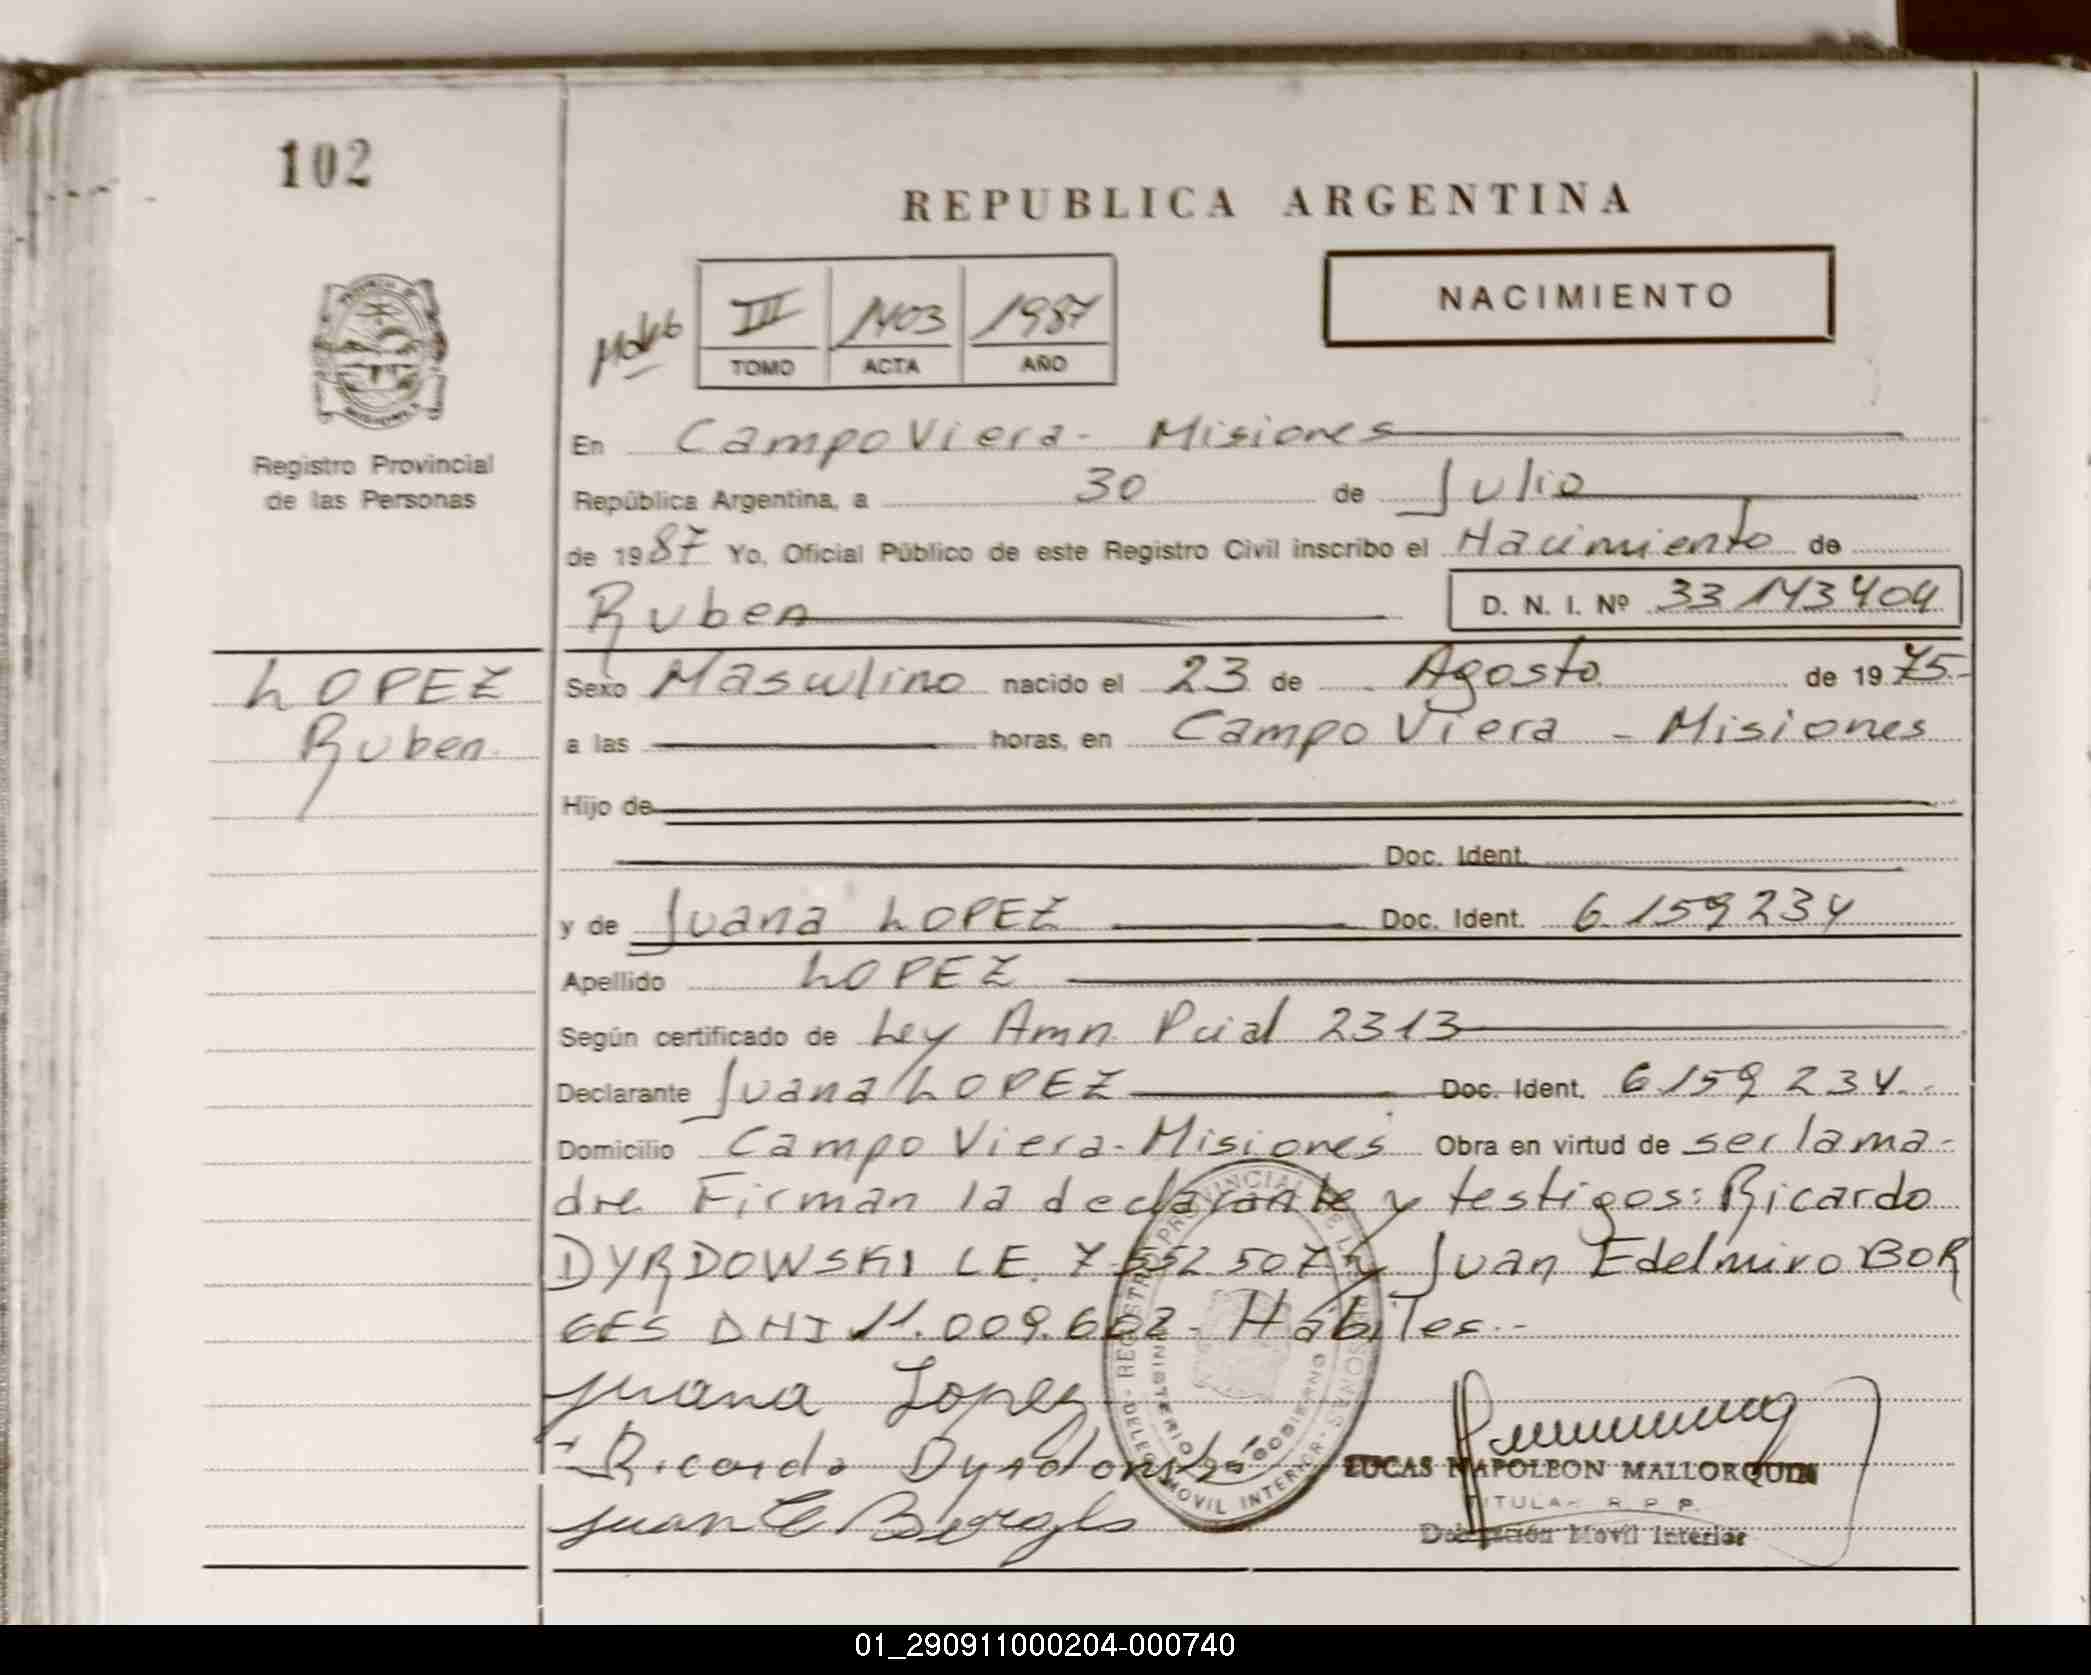 102
REPUBLICA ARGENTINA
NACIMIENTO
III 1403 1987
TOMO ACTA AÑO
Registro Provincial
de las Personas
En Campo Viera - Misiones
República Argentina, a 30 de Julio
de 1987 Yo, Oficial Público de este Registro Civil inscribo el Nacimiento de
Ruben D. N. I. Nº 33143404
LOPEZ
Ruben
Sexo Masculino nacido el 23 de Agosto de 1975.-
a las horas, en Campo Viera - Misiones
Hijo de
Doc. Ident.
y de Juana LOPEZ Doc. Ident. 6.159234
Apellido LOPEZ
Según certificado de Ley Amn. Pcial 2313
Declarante Juana LOPEZ Doc. Ident. 6159234.-
Domicilio Campo Viera - Misiones Obra en virtud de ser la ma-
dre Firman la declarante y testigos: Ricardo
DYRDOWSKI LE. 7.552.507 y Juan Edelmiro BOR
GES DNI 11.009.662 - Hábiles.-
Juana Lopez
Ricardo Dyrdowski
Juan E Borges
REGISTRO PROVINCIAL DE LAS PERSONAS - DELEG. MOVIL INTERIOR -
MINISTERIO GOBIERNO
LUCAS NAPOLEON MALLORQUIN
TITULAR R. P. P.
Delegación Movil Interior
01_290911000204-000740